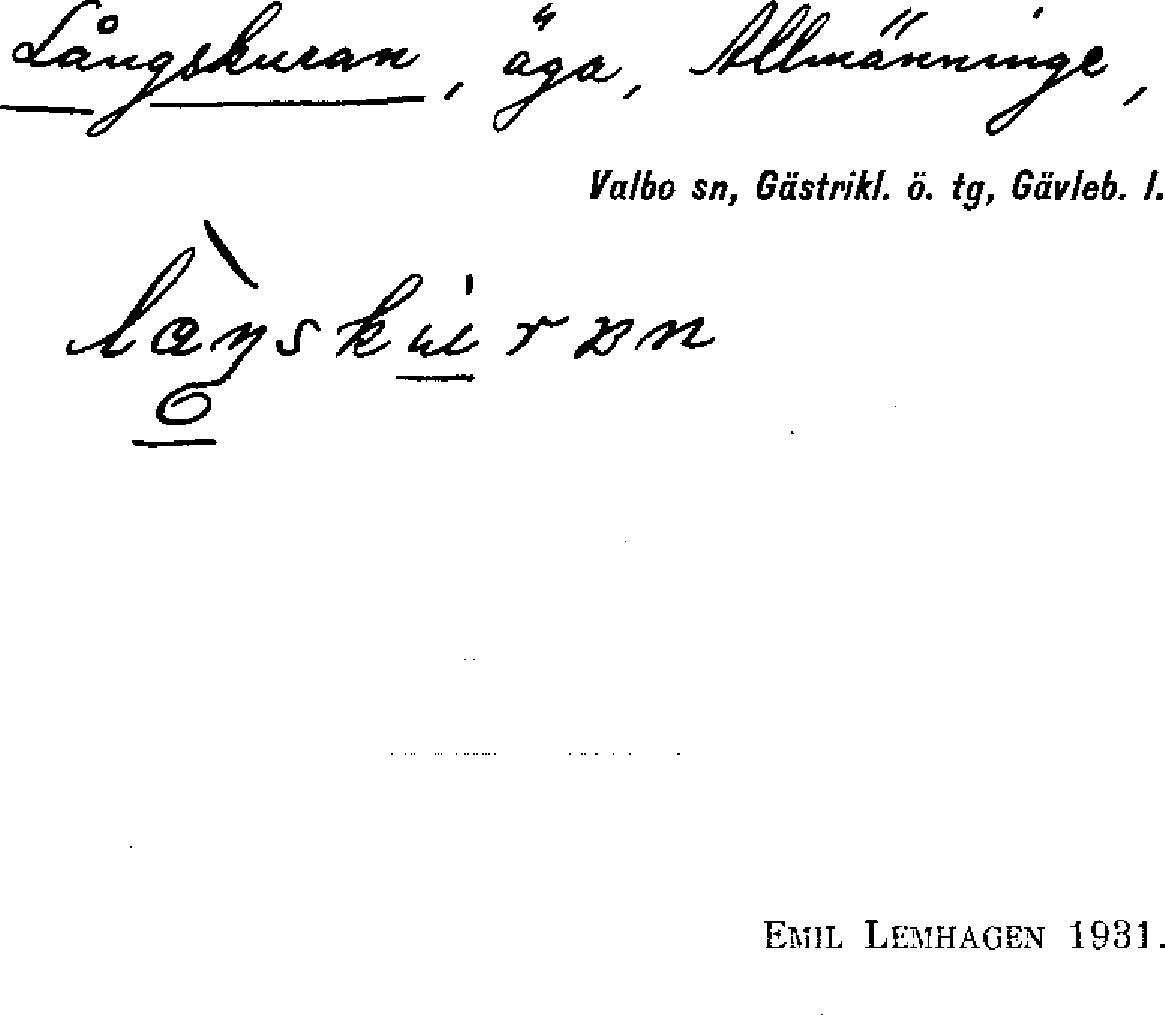 Långskuran, äga, Allmänninge,
Valbo sn, Gästrikl. ö. tg, Gävleb. l.
EMIL LEMHAGEN 1931.